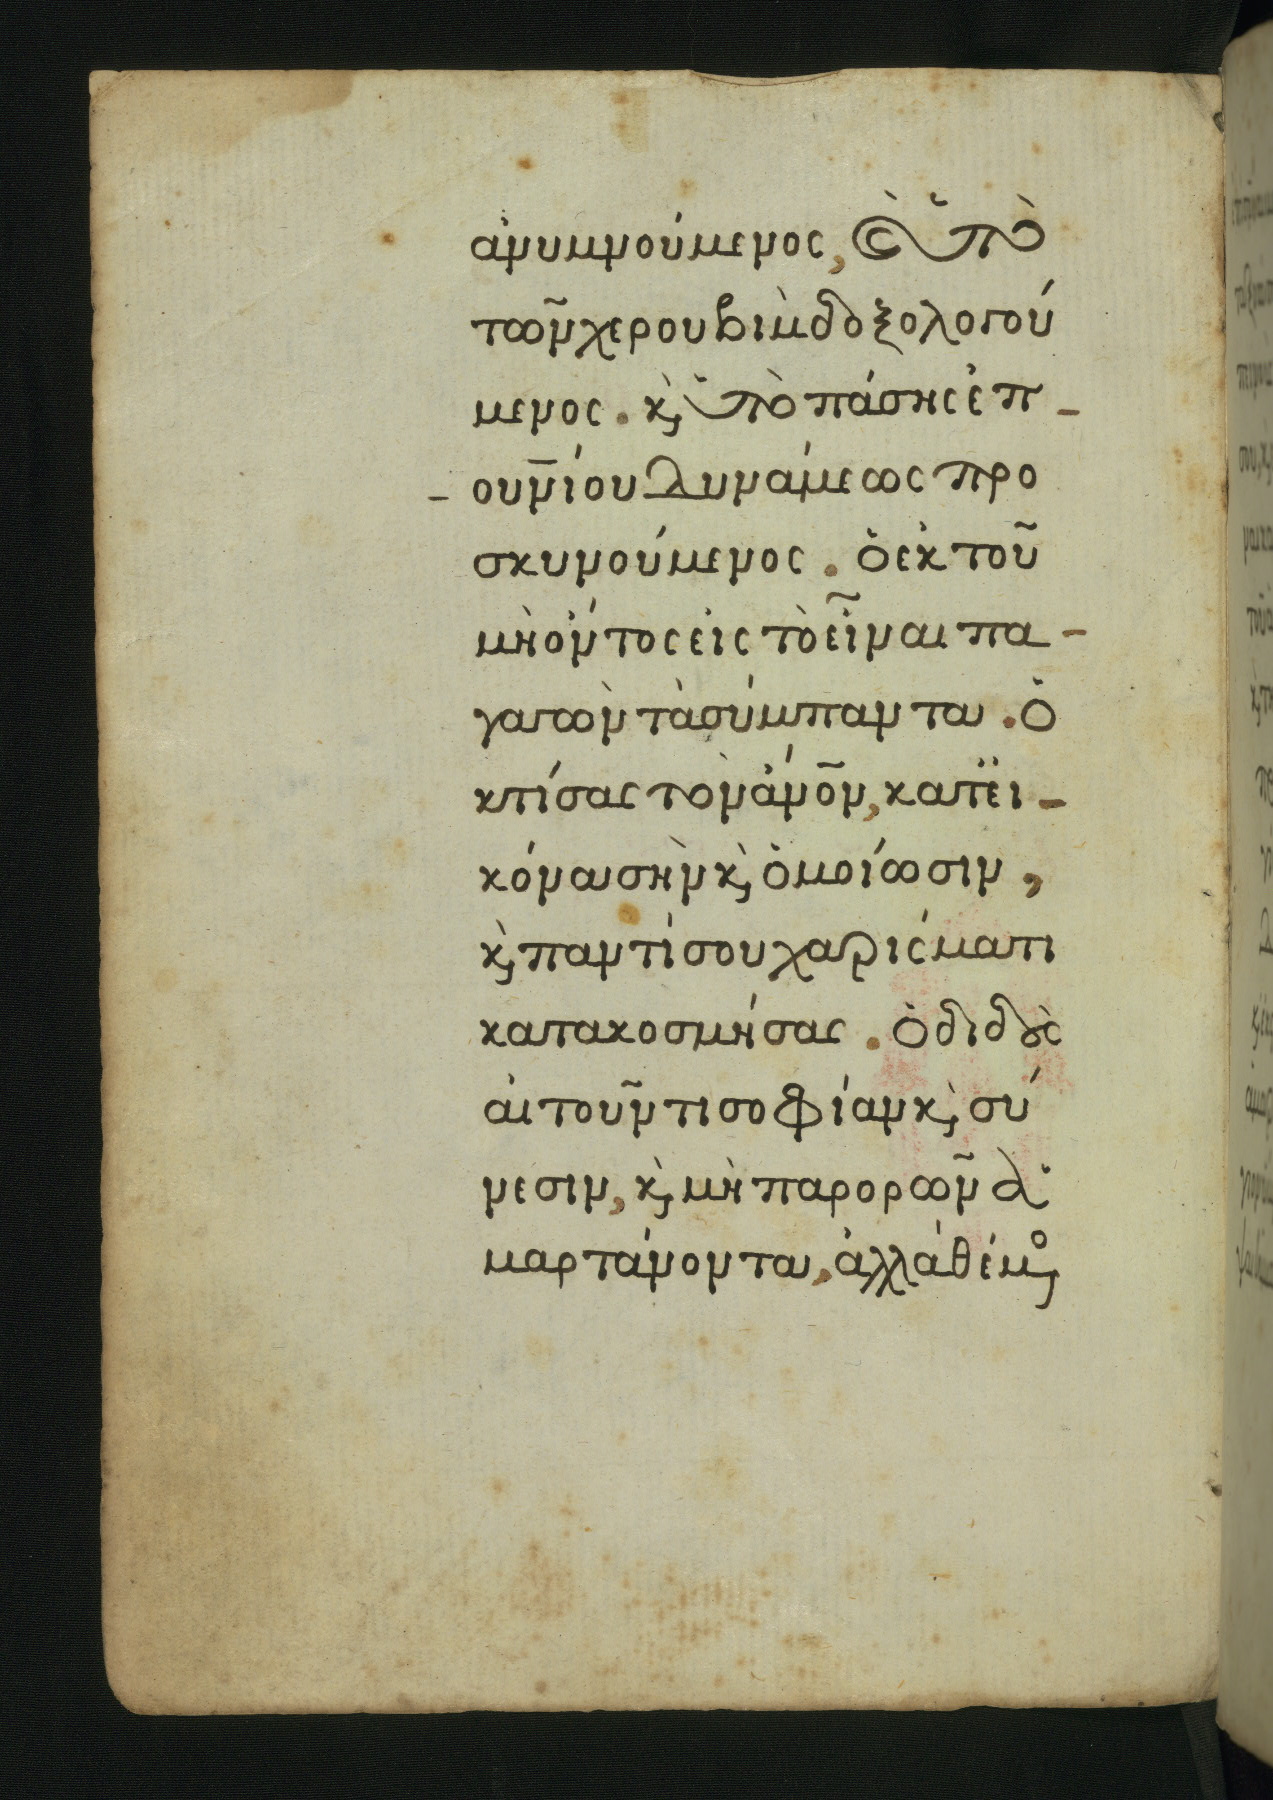 ἀνυμνούμενος, καὶ ὑπὸ
τῶν χερουβὶμ δοξολογού
μενος. κ̀, ὑπὸ πάσης ἐπ-
-ουνίου δυνάμεως προ
σκυνούμενος. ὁ ἐκ τοῦ
μὴ ὄντος εἰς τὸ εἶναι πα-
γαγὼν τὰ σύμπαντα. ὁ
κτίσας τὸν ἄνον, κατ εἰ-
κόνα σὴν κ̀, ὁμοίωσιν,
κ̀, παντί σου χαρίσματι
κατακοσμήσας. ὁ διδοὺς
αἰτοῦντι σοφίαν κ̀, σύ
νεσιν, κ̀, μὴ παρορῶν ἁ
μαρτάνοντα, ἀλλὰ θέμο,